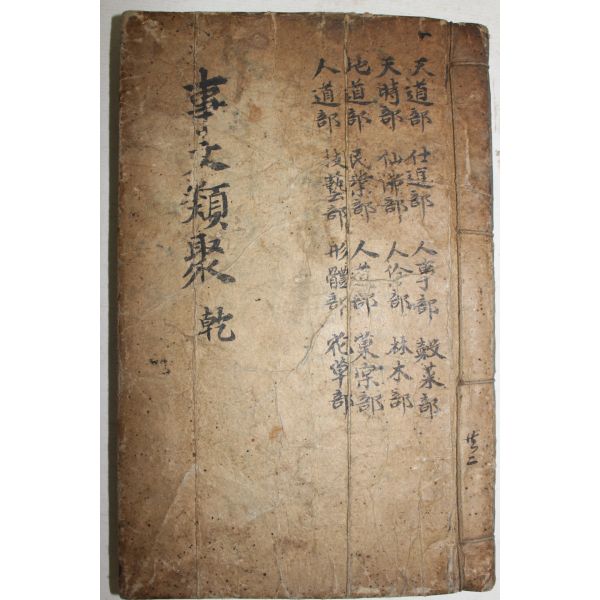 天道部 仕進部 人事部 穀菜部
天時部 仙佛部 人倫部 林木部
地道部 民業部 人道部 菓部
人道部 技藝部 形體部 花草部
事文類聚 乾
共二